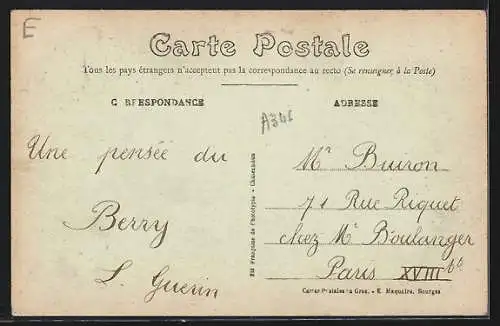 E
Carte Postale
Tous les pays étrangers n'acceptent pas la correspondance au recto (Se renseigner à la Poste)
C RFESPONDANCE
ADRESSE
A346
Une pensée du
Berry
L. Guerin
Mr Buiron
71 Rue Riquet
chez Mr Boulanger
Paris XVIII
Sté Française de Phototypie - Châteaudun
Cartes Postales en Gros. - E. Maquaire, Bourges